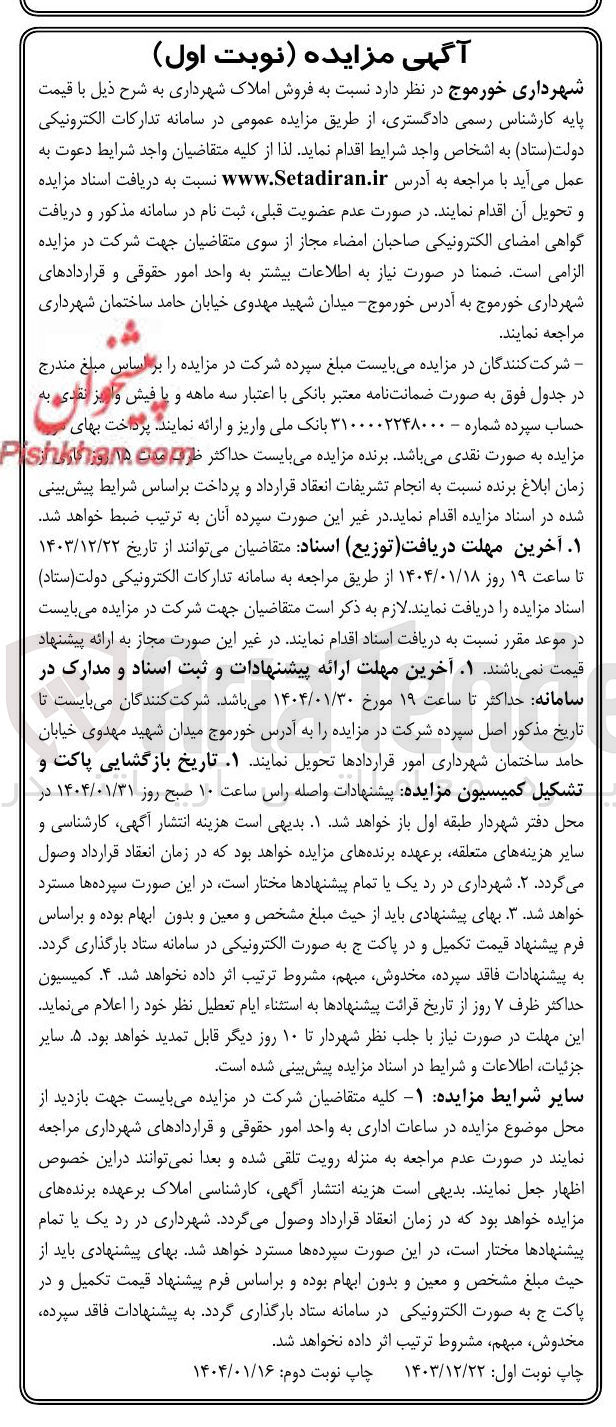 آگهی مزایده (نوبت اول)
شهرداری خورموج در نظر دارد نسبت به فروش املاک شهرداری به شرح ذیل با قیمت
پایه کارشناس رسمی دادگستری، از طریق مزایده عمومی در سامانه تدارکات الکترونیکی
دولت(ستاد) به اشخاص واجد شرایط اقدام نماید. لذا از کلیه متقاضیان واجد شرایط دعوت به
عمل می‌آید با مراجعه به آدرس www.Setadiran.ir نسبت به دریافت اسناد مزایده
و تحویل آن اقدام نمایند. در صورت عدم عضویت قبلی، ثبت نام در سامانه مذکور و دریافت
گواهی امضای الکترونیکی صاحبان امضاء مجاز از سوی متقاضیان جهت شرکت در مزایده
الزامی است. ضمنا در صورت نیاز به اطلاعات بیشتر به واحد امور حقوقی و قراردادهای
شهرداری خورموج به آدرس خورموج- میدان شهید مهدوی خیابان حامد ساختمان شهرداری
مراجعه نمایند.
- شرکت‌کنندگان در مزایده می‌بایست مبلغ سپرده شرکت در مزایده را براساس مبلغ مندرج
در جدول فوق به صورت ضمانت‌نامه معتبر بانکی با اعتبار سه ماهه و یا فیش واریز نقدی به
حساب سپرده شماره - ۳۱۰۰۰۰۲۲۴۸۰۰۰ بانک ملی واریز و ارائه نمایند. پرداخت بهای
مزایده به صورت نقدی می‌باشد. برنده مزایده می‌بایست حداکثر ظرف مدت ۱۵ روز کاری از
زمان ابلاغ برنده نسبت به انجام تشریفات انعقاد قرارداد و پرداخت براساس شرایط پیش‌بینی
شده در اسناد مزایده اقدام نماید.در غیر این صورت سپرده آنان به ترتیب ضبط خواهد شد.
۱. آخرین مهلت دریافت(توزیع) اسناد: متقاضیان می‌توانند از تاریخ ۱۴۰۳/۱۲/۲۲
تا ساعت ۱۹ روز ۱۴۰۴/۰۱/۱۸ از طریق مراجعه به سامانه تدارکات الکترونیکی دولت(ستاد)
اسناد مزایده را دریافت نمایند.لازم به ذکر است متقاضیان جهت شرکت در مزایده می‌بایست
در موعد مقرر نسبت به دریافت اسناد اقدام نمایند. در غیر این صورت مجاز به ارائه پیشنهاد
قیمت نمی‌باشند. ۱. آخرین مهلت ارائه پیشنهادات و ثبت اسناد و مدارک در
سامانه: حداکثر تا ساعت ۱۹ مورخ ۱۴۰۴/۰۱/۳۰ می‌باشد. شرکت‌کنندگان می‌بایست تا
تاریخ مذکور اصل سپرده شرکت در مزایده را به آدرس خورموج میدان شهید مهدوی خیابان
حامد ساختمان شهرداری امور قراردادها تحویل نمایند. ۱. تاریخ بازگشایی پاکت و
تشکیل کمیسیون مزایده: پیشنهادات واصله راس ساعت ۱۰ صبح روز ۱۴۰۴/۰۱/۳۱ در
محل دفتر شهردار طبقه اول باز خواهد شد. ۱. بدیهی است هزینه انتشار آگهی، کارشناسی و
سایر هزینه‌های متعلقه، برعهده برنده‌های مزایده خواهد بود که در زمان انعقاد قرارداد وصول
می‌گردد. ۲. شهرداری در رد یک یا تمام پیشنهادها مختار است، در این صورت سپرده‌ها مسترد
خواهد شد. ۳. بهای پیشنهادی باید از حیث مبلغ مشخص و معین و بدون ابهام بوده و براساس
فرم پیشنهاد قیمت تکمیل و در پاکت ج به صورت الکترونیکی در سامانه ستاد بارگذاری گردد.
به پیشنهادات فاقد سپرده، مخدوش، مبهم، مشروط ترتیب اثر داده نخواهد شد. ۴. کمیسیون
حداکثر ظرف ۷ روز از تاریخ قرائت پیشنهادها به استثناء ایام تعطیل نظر خود را اعلام می‌نماید.
این مهلت در صورت نیاز با جلب نظر شهردار تا ۱۰ روز دیگر قابل تمدید خواهد بود. ۵. سایر
جزئیات، اطلاعات و شرایط در اسناد مزایده پیش‌بینی شده است.
سایر شرایط مزایده: ۱- کلیه متقاضیان شرکت در مزایده می‌بایست جهت بازدید از
محل موضوع مزایده در ساعات اداری به واحد امور حقوقی و قراردادهای شهرداری مراجعه
نمایند در صورت عدم مراجعه به منزله رویت تلقی شده و بعدا نمی‌توانند دراین خصوص
اظهار جعل نمایند. بدیهی است هزینه انتشار آگهی، کارشناسی املاک برعهده برنده‌های
مزایده خواهد بود که در زمان انعقاد قرارداد وصول می‌گردد. شهرداری در رد یک یا تمام
پیشنهادها مختار است، در این صورت سپرده‌ها مسترد خواهد شد. بهای پیشنهادی باید از
حیث مبلغ مشخص و معین و بدون ابهام بوده و براساس فرم پیشنهاد قیمت تکمیل و در
پاکت ج به صورت الکترونیکی در سامانه ستاد بارگذاری گردد. به پیشنهادات فاقد سپرده،
مخدوش، مبهم، مشروط ترتیب اثر داده نخواهد شد.
چاپ نوبت اول: ۱۴۰۳/۱۲/۲۲ چاپ نوبت دوم: ۱۴۰۴/۰۱/۱۶
پیشخوان
Pishkhan.com